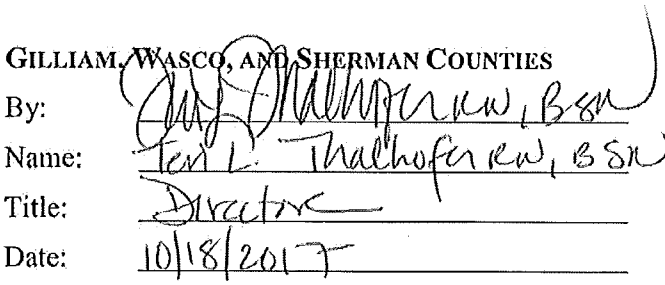 GILLIAM, WASCO, AND SHERMAN COUNTIES
By: Teri L Thalhofer RN, BSN
Name: Teri L. Thalhofer RN, BSN
Title: Director
Date: 10/18/2017